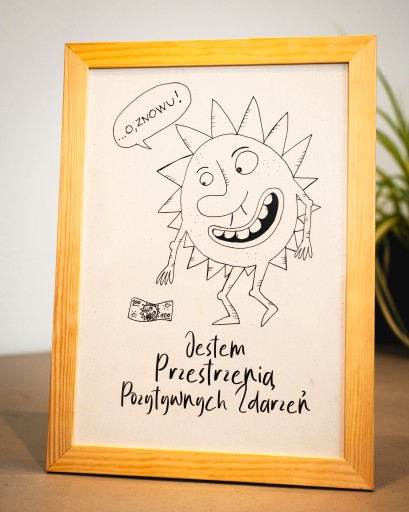 ...O, ZNOWU!
100 100
Jestem
Przestrzenią
Pozytywnych Zdarzeń